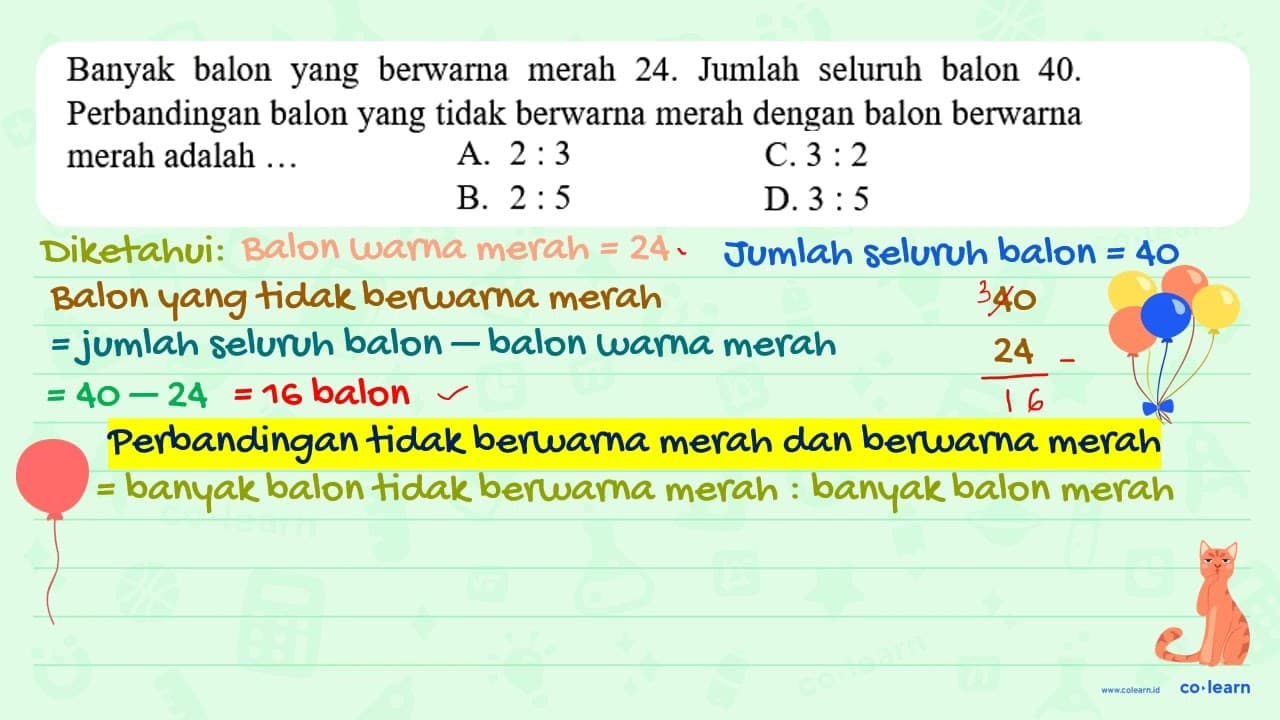 Banyak balon yang berwarna merah 24. Jumlah seluruh balon 40.
Perbandingan balon yang tidak berwarna merah dengan balon berwarna
merah adalah ... A. 2 : 3 C. 3 : 2
B. 2 : 5 D. 3 : 5
Diketahui: Balon warna merah = 24 Jumlah seluruh balon = 40
Balon yang tidak berwarna merah 3 40
= jumlah seluruh balon — balon warna merah 24 –
= 40 — 24 = 16 balon ✓ 16
Perbandingan tidak berwarna merah dan berwarna merah
= banyak balon tidak berwarna merah : banyak balon merah
co·learn
co·learn
www.colearn.id co·learn